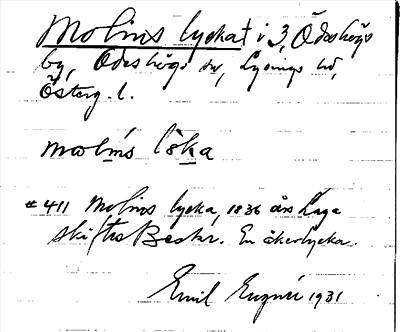 Molins lyckat i 3, Ödeshögs
by, Ödeshögs sn, Lysings hd,
Österg. l.
molins löka
*411 Molins lycka, 1836 års Laga
skiftes Beskr. En åkerlycka.
Emil 1931